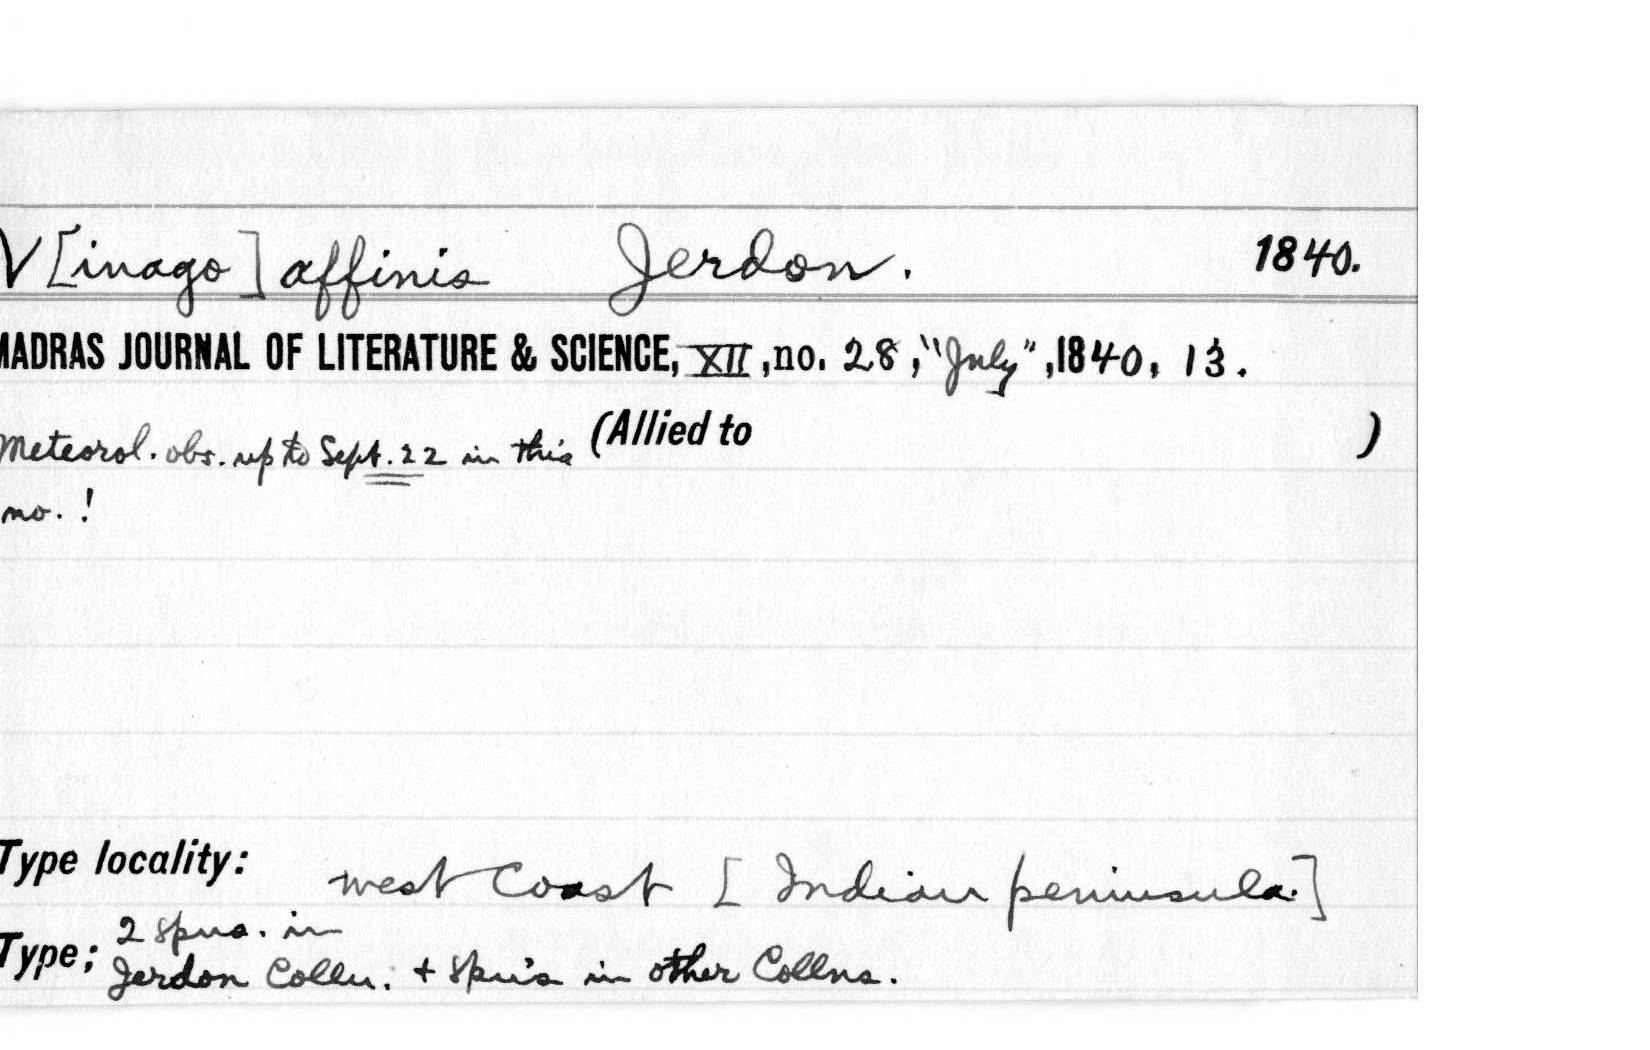 V[inago] affinis Jerdon. 1840.
MADRAS JOURNAL OF LITERATURE & SCIENCE, XII, no. 28, "July", 1840, 13.
(Allied to )
Meteorol. obs. up to Sept. 22 in this
no. !
Type locality: west Coast [Indian peninsula.]
2 spns. in
Type; Jerdon Colln. + spns in other Collns.